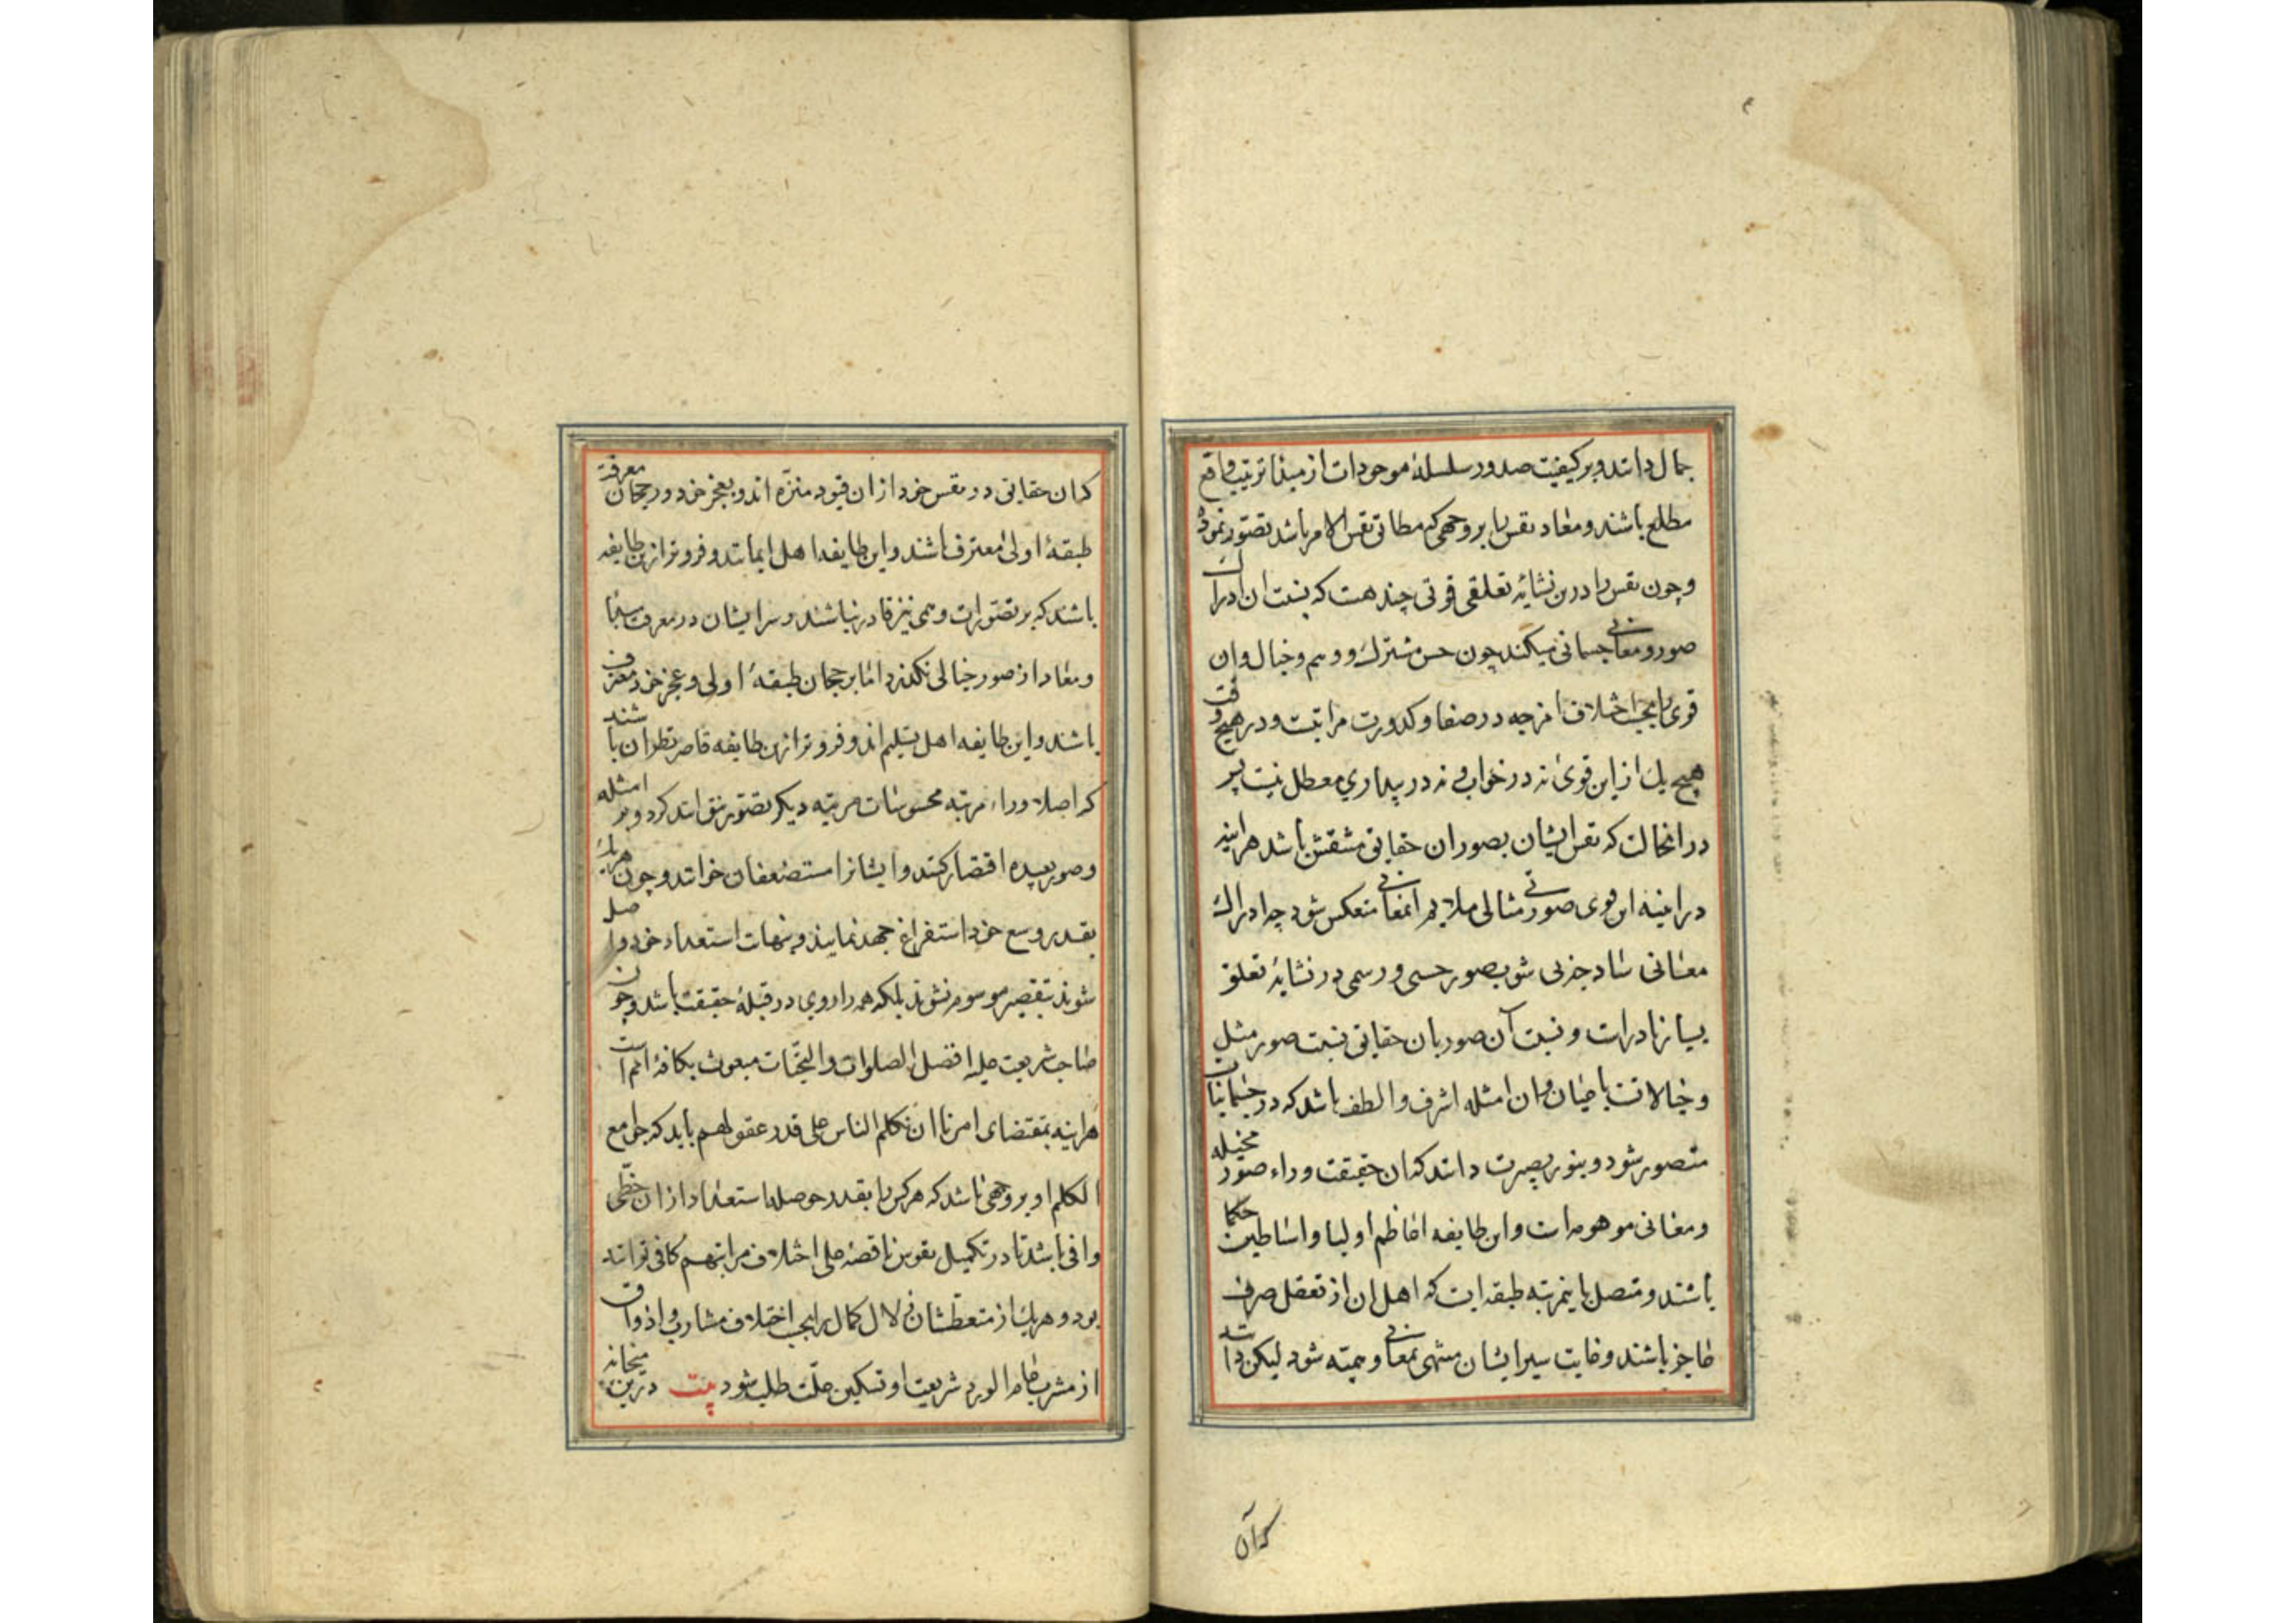 جمال دانند و بر کیفیت صدور سلسلهٔ موجودات از مبدا بترتیب واقع
مطلع باشند و معاد نفس را بر وجهی که مطابق نفس الامر باشد تصور نموده
و چون نفس را درین نشایهٔ تعلقی قوتی چند هست که بنسبت ان ادراک
صور و معانی جسمانی میکند چون حس مشترک و وهم و خیال و ان
قوی را بحسب اختلاف امزجه در صفا و کدورت مراتبست و در هیچ وقت
هیچ یک از این قوی نه در خواب و نه در بیداری معطل نیست پس
در انحالت که نفس ایشان بصور ان حقایق منتقش باشد هراینه
در اینه این قوی صورتی مثالی ملایم انمعانی منعکس شود چه ادراک
معانی ساد جز بی شوب صور حسی و رسمی در نشایهٔ تعلق
بسیار نادرات و نسبت آن صور بان حقایق نسبت صور مثل
و خیالاتست باعیان و ان امثله اشرف و الطف باشد که در جسمانیات
متصور شود و بنور بصیرت دانند که ان حقیقت وراء صور مخیله
و معانی موهومه است و این طایفه اعاظم اولیا و اساطین حکما
باشند و متصل باینمرتبه طبقه ایست که اهل ان از تعقل صرف
عاجز باشند و غایت سیر ایشان منتهی بمعانی وهمیته شود لیکن دانند
که آن
که ان حقایق در نفس خود از ان قیود منزه اند و بعجز خود و رجحان معرفت
طبقهٔ اولی معترف باشند و این طایفه اهل ایمانند و فروتر ازین طایفه
باشند که بر تصورات وهمی نیز قادر نباشند و سر ایشان در معرفت مبدا
و معاد از صور خیالی نکذرد اما بر رجحان طبقهٔ اولی و عجز خود معترف
باشند و این طایفه اهل تسلیم اند و فروتر ازین طایفه قاصر نظران باشند
که اصلا وراء مرتبه محسوسات مرتبه دیکر تصور نتوانند کرد و بر امثله
و صور بعیده اقتصار کنند و ایشانرا مستضعفان خوانند و چون هر یک
بقدر وسع خود استفراغ جهد نمایند و بنهایت استعداد خود واصل
شوند بتقصیر موسوم نشوند بلکه همه را روی در قبلهٔ حقیقت باشد و چون
صاحب شریعت علیه افضل الصلوات و التحیات مبعوث بکافهٔ امم است
هراینه بمقتضای امرنا ان نکلم الناس علی قدر عقولهم باید که جوامع
الکلم او بر وجهی باشد که هر کس را بقدر حوصله استعداد از ان حظی
وافی باشد تا در تکمیل نفوس ناقصه علی اختلاف مراتبهم کافی تواند
بود و هریک از متعطشان زلال کمال را بحسب اختلاف مشارب و اذواق
از مشرب عام الورد شریعت او تسکین علت طلب شود بیت درین میخانه